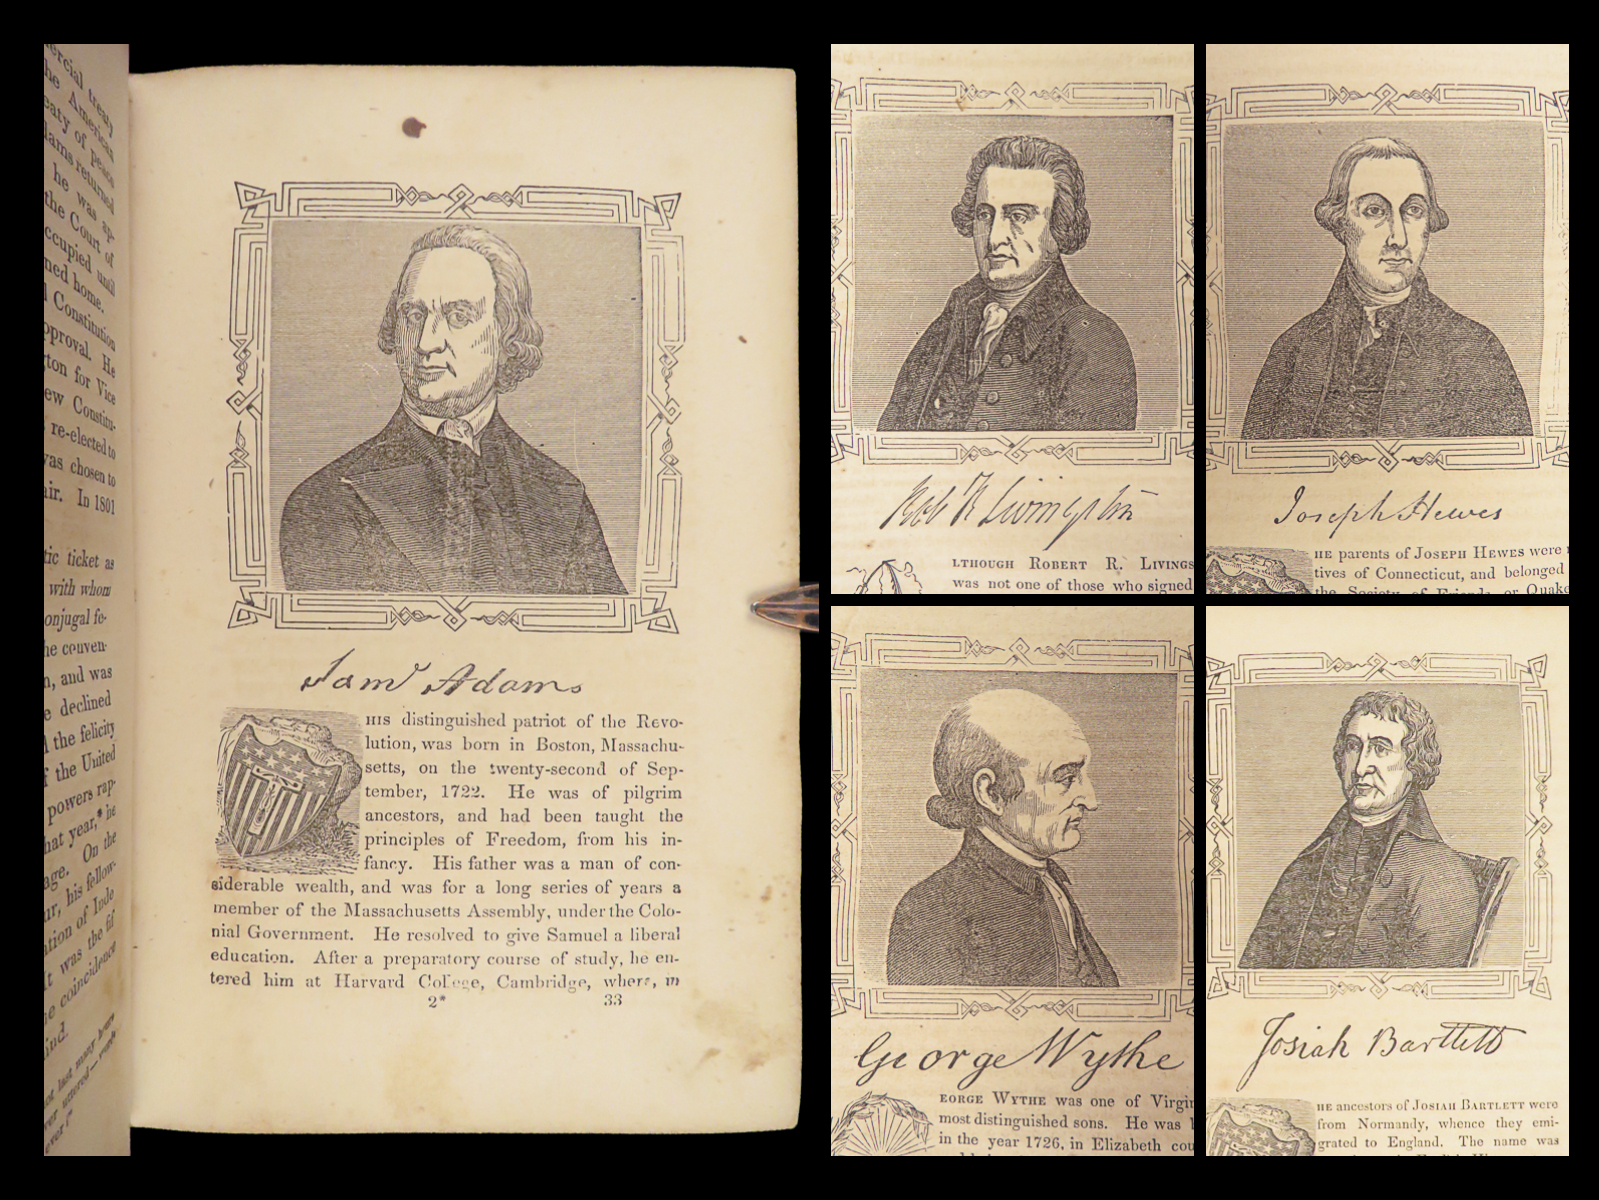 ercial treaty
he American
eaty of peace
lams returned
he was ap-
the Court of
ccupied until
ned home.
Constitution
pproval. He
ton for Vice
ew Constitu-
re-elected to
was chosen to
air. In 1801
tic ticket as
with whom
onjugal fe-
he conven-
n, and was
e declined
the felicity
f the United
powers rap-
hat year,* he
age. On the
ur, his fellow-
ation of Inde
It was the fif
he coincidence
ost last many hours
Sam Adams
HIS distinguished patriot of the Revo-
lution, was born in Boston, Massachu-
setts, on the twenty-second of Sep-
tember, 1722. He was of pilgrim
ancestors, and had been taught the
principles of Freedom, from his in-
fancy. His father was a man of con-
siderable wealth, and was for a long series of years a
member of the Massachusetts Assembly, under the Colo-
nial Government. He resolved to give Samuel a liberal
education. After a preparatory course of study, he en-
tered him at Harvard College, Cambridge, where, in
2* 33
Rob R Livingston
LTHOUGH ROBERT R. LIVINGS
was not one of those who signed
Joseph Hewes
HE parents of JOSEPH HEWES were
tives of Connecticut, and belonged
the Society of Friends, or Quake
George Wythe
EORGE WYTHE was one of Virgin
most distinguished sons. He was
in the year 1726, in Elizabeth cou
Josiah Bartlett
HE ancestors of JOSIAH BARTLETT were
from Normandy, whence they emi-
grated to England. The name was